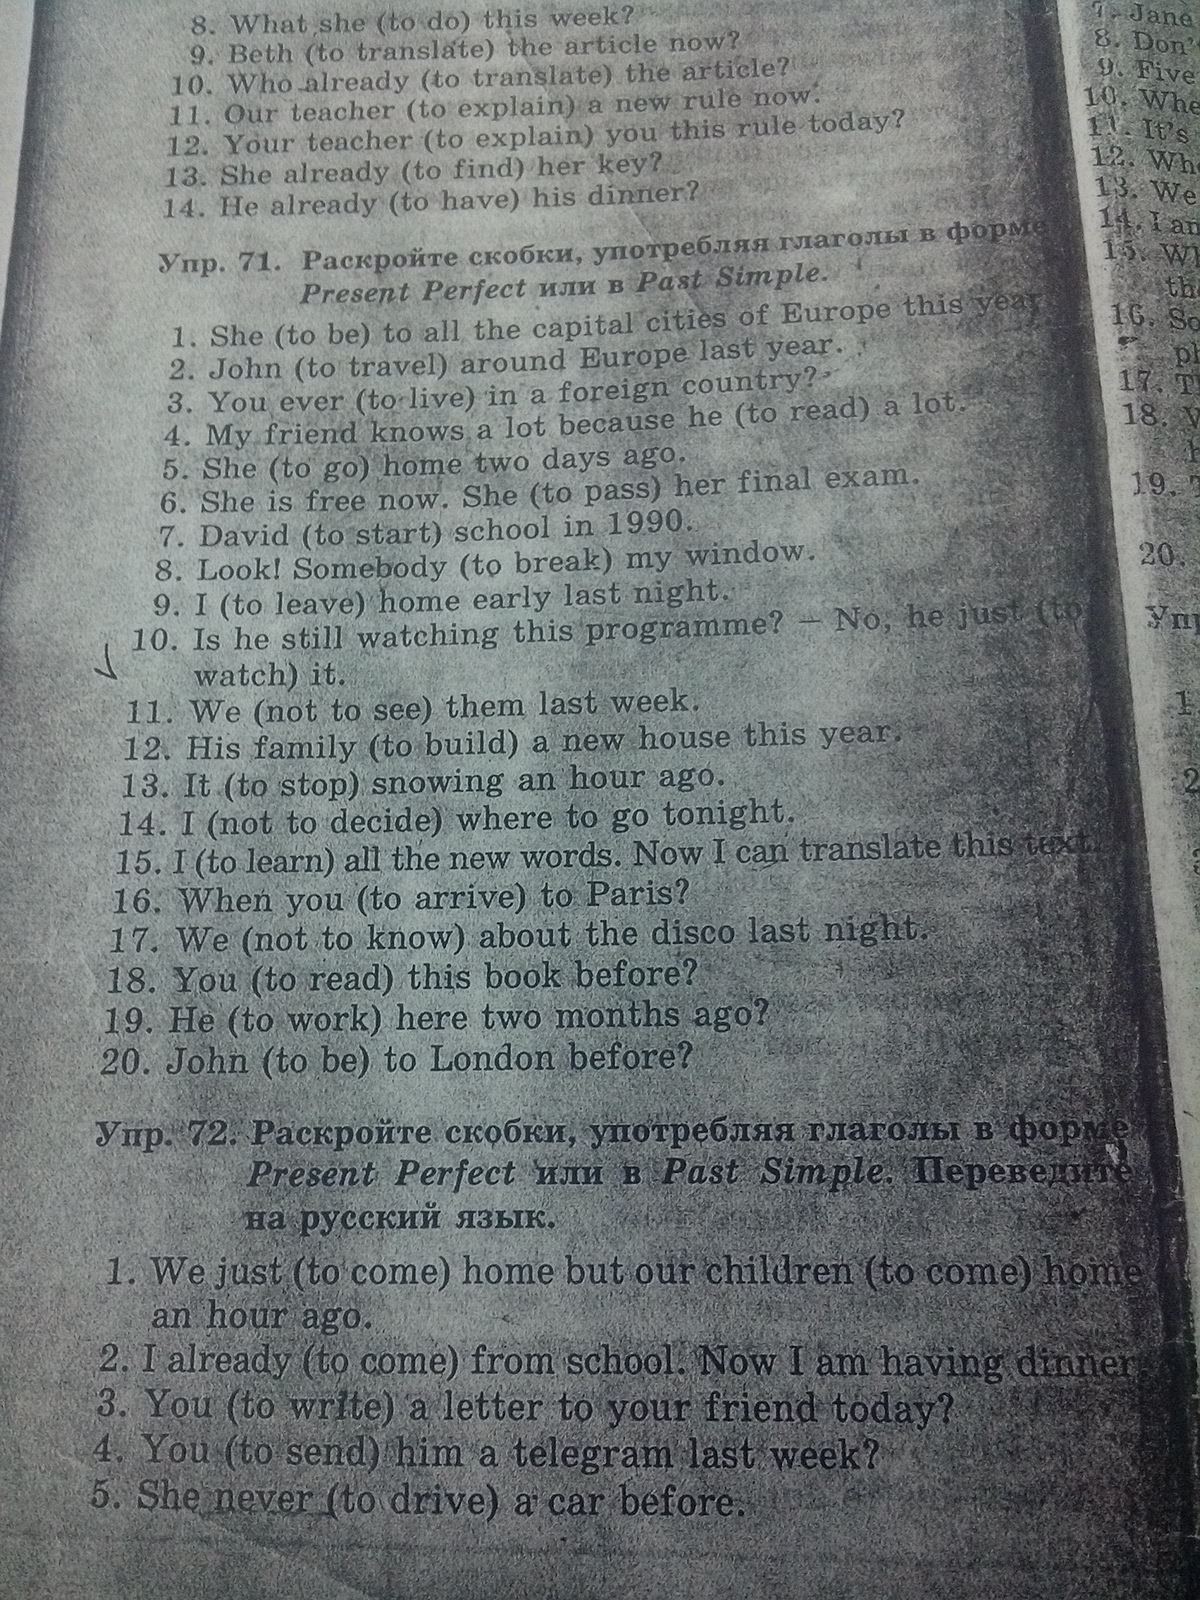 8. What she (to do) this week?
9. Beth (to translate) the article now?
10. Who already (to translate) the article?
11. Our teacher (to explain) a new rule now.
12. Your teacher (to explain) you this rule today?
13. She already (to find) her key?
14. He already (to have) his dinner?
Упр. 71. Раскройте скобки, употребляя глаголы в форме
Present Perfect или в Past Simple.
1. She (to be) to all the capital cities of Europe this year
2. John (to travel) around Europe last year.
3. You ever (to live) in a foreign country?
4. My friend knows a lot because he (to read) a lot.
5. She (to go) home two days ago.
6. She is free now. She (to pass) her final exam.
7. David (to start) school in 1990.
8. Look! Somebody (to break) my window.
9. I (to leave) home early last night.
10. Is he still watching this programme? — No, he just (to
watch) it.
11. We (not to see) them last week.
12. His family (to build) a new house this year.
13. It (to stop) snowing an hour ago.
14. I (not to decide) where to go tonight.
15. I (to learn) all the new words. Now I can translate this text.
16. When you (to arrive) to Paris?
17. We (not to know) about the disco last night.
18. You (to read) this book before?
19. He (to work) here two months ago?
20. John (to be) to London before?
Упр. 72. Раскройте скобки, употребляя глаголы в форме
Present Perfect или в Past Simple. Переведите
на русский язык.
1. We just (to come) home but our children (to come) home
an hour ago.
2. I already (to come) from school. Now I am having dinner
3. You (to write) a letter to your friend today?
4. You (to send) him a telegram last week?
5. She never (to drive) a car before.
7. Jane
8. Don'
9. Five
10. Whe
11. It's
12. Wh
13. We
14. I an
15. W
th
16. So
pl
17. T
18.
19.
20.
Упр
1
2